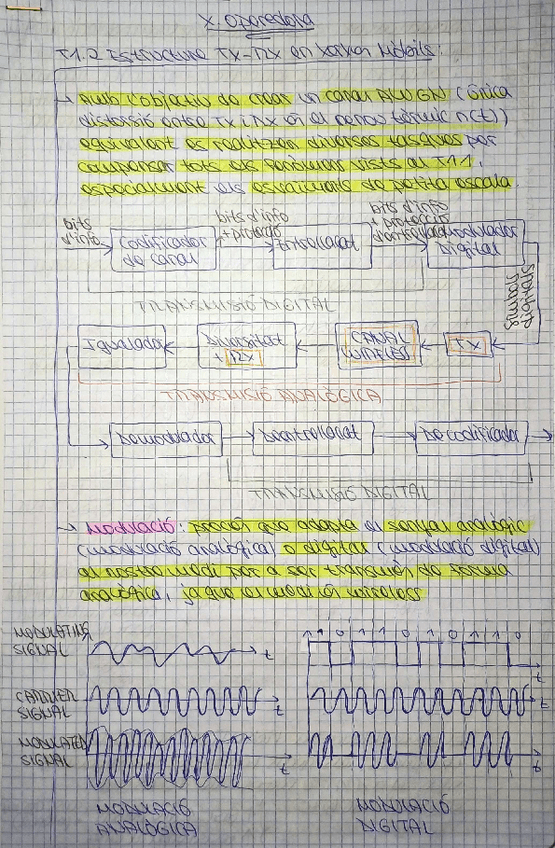 X. Operadora
T1.2 Estructura TX-RX en Xarxes Mòbils:
→ Amb l'objectiu de crear un canal AWGN (única
distorsió entre TX i RX és el soroll tèrmic n(t))
equivalent es realitzen diverses tasques per
compensar tots els fenòmens vists al T1.1,
especialment els esvaïments de petita escala.
bits d'info
Codificador de canal
bits d'info + protecció
Entrellaçat
bits d'info + protecció
Modulador Digital
TRANSMISSIÓ DIGITAL
Igualador
Diversitat + RX
CANAL WIRELESS
TX
TRANSMISSIÓ ANALÒGICA
Demodulador
Desentrellaçat
Decodificador
TRANSMISSIÓ DIGITAL
→ Modulació: procés que adapta el senyal analògic
(modulació analògica) o digital (modulació digital)
al nostre medi per a ser transmès de forma
analògica, ja que el medi és wireless
MODULATING SIGNAL
t
1 1 0 1 1 0 1 0 1 1 0
t
CARRIER SIGNAL
t
t
MODULATED SIGNAL
t
t
MODULACIÓ ANALÒGICA
MODULACIÓ DIGITAL